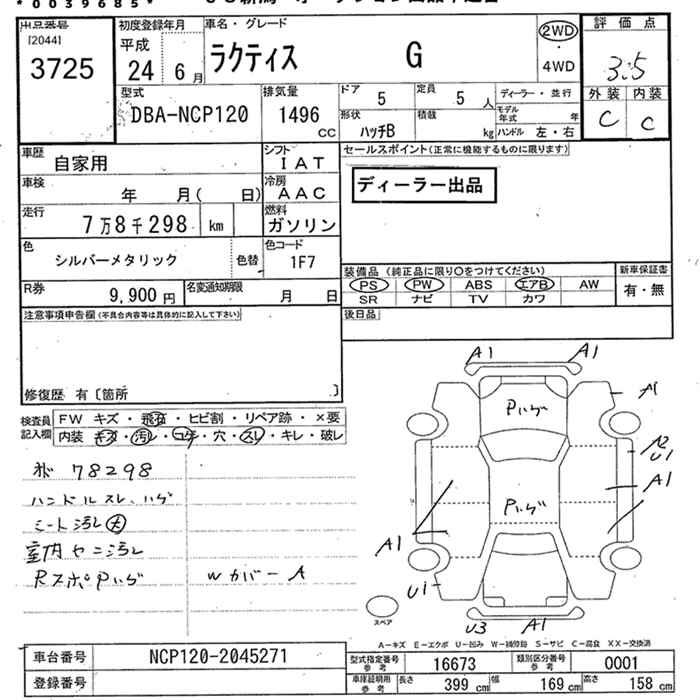 *0039685*
出品番号
[2044]
3725
初度登録年月
平成
24 6月
車名・グレード
ラクティス G
2WD
・
4WD
評価点
3.5
外装 内装
C C
型式
DBA-NCP120
排気量
1496
CC
ドア
5
定員
5 人
ディーラー・並行
モデル年式 年
形状
ハッチB
積載
kg
ハンドル 左・右
車歴
自家用
シフト
IAT
セールスポイント(正常に機能するものに限ります)
ディーラー出品
車検
年 月( 日)
冷房
AAC
走行
7万8千298 km
燃料
ガソリン
色
シルバーメタリック
色替
色コード
1F7
装備品 (純正品に限り○をつけてください)
新車保証書
PS PW ABS エアB AW
有・無
SR ナビ TV カワ
R券
9,900 円
名変通知期限
月 日
後日品
注意事項申告欄(不具合内容等は具体的に記入して下さい)
修復歴 有〔箇所 〕
検査員記入欄
FW キズ・飛石・ヒビ割・リペア跡・×要
内装 キズ・汚レ・コゲ・穴・スレ・キレ・破レ
78298
ハンドルスレ、ハゲ
シート汚レ大
室内ヤニ汚レ
RスポPハゲ
Wカバー A
A1 A1
Pハゲ
A1
U1
A1
Pハゲ
A1
U1
U3 A1
スペア
A-キズ E-エクボ U-凹み W-補修跡 S-サビ C-腐食 XX-交換済
車台番号
NCP120-2045271
登録番号
型式指定番号
参考
16673
類別区分番号
参考
0001
車庫証明用
参考
長さ
399 cm
幅
169 cm
高さ
158 cm